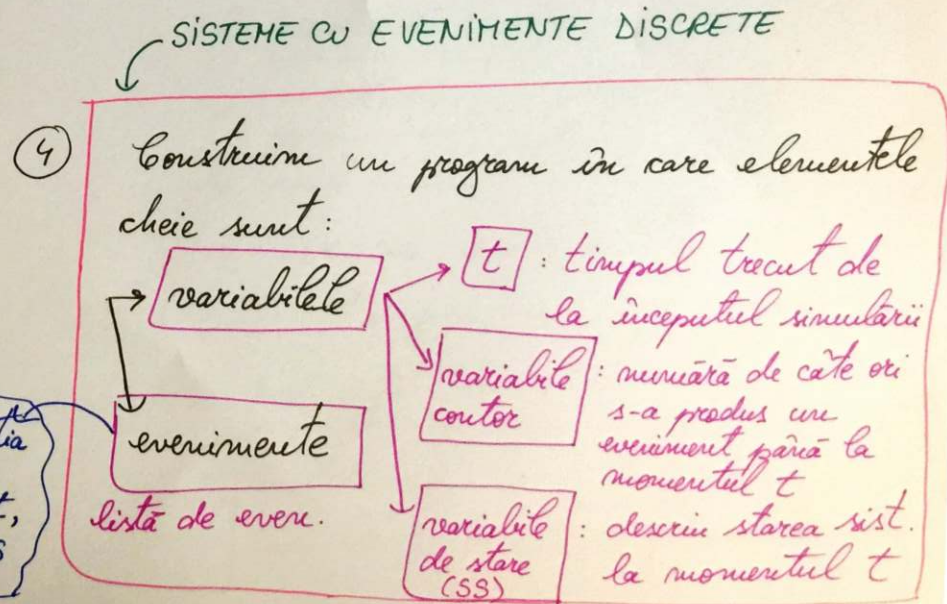 SISTEME CU EVENIMENTE DISCRETE
4
Construim un program în care elementele
cheie sunt:
variabilele
t : timpul trecut de
la începutul simulării
variabile contor : numără de câte ori
s-a produs un
eveniment până la
momentul t
evenimente
listă de even.
variabile de stare (SS) : descriu starea sist.
la momentul t
tia
t,
s